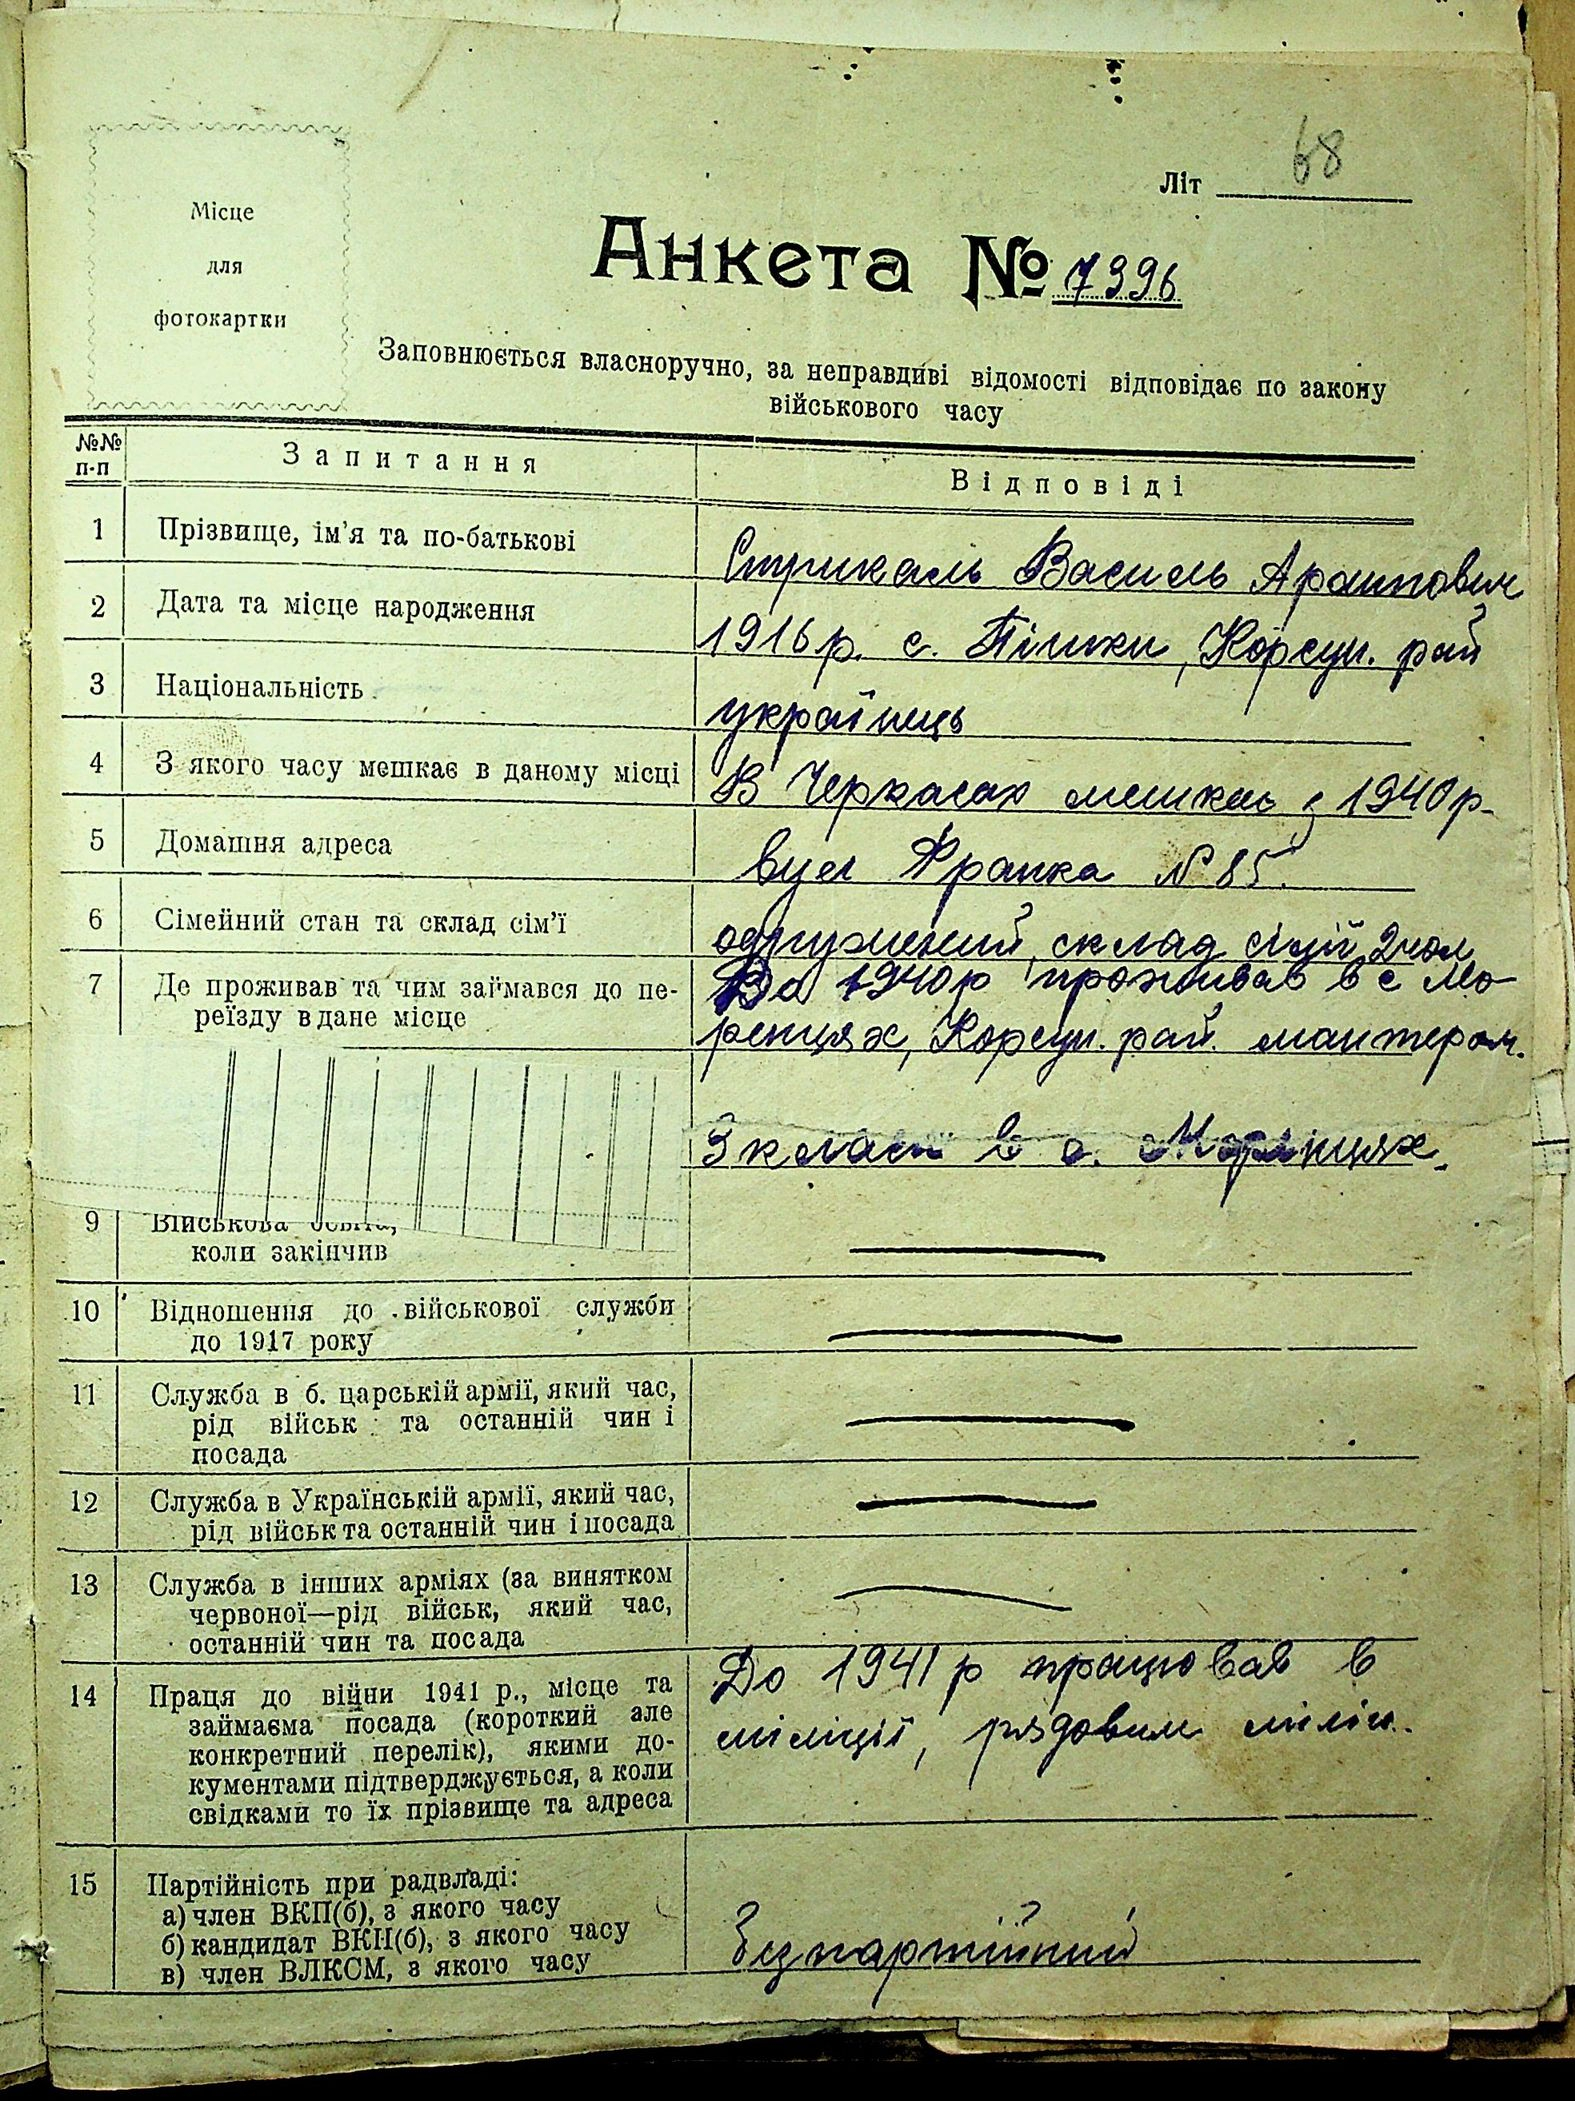 Місце
для
фотокартки
Літ 68
Анкета № 7996
Заповнюється власноручно, за неправдиві відомості відповідає по закону
військового часу
№№
п-п
Запитання
Відповіді
1 Прізвище, ім'я та по-батькові
Стрикаль Василь
2 Дата та місце народження
1916 р. с. Пішки, Корсун. рай
3 Національність
українець
4 З якого часу мешкає в даному місці
В Черкасах мешкаю з 1940 р.
5 Домашня адреса
вул Франка № 85.
6 Сімейний стан та склад сім'ї
одружений, склад сімії 2 чол
7 Де проживав та чим займався до пе-
реїзду в дане місце
До 1940 р проживав в с Мо-
ренцях, Корсун. рай. монтером.
3 класи в с. Моринцях.
9 Військова освіта,
коли закінчив
10 Відношення до військової служби
до 1917 року
11 Служба в б. царській армії, який час,
рід військ та останній чин і
посада
12 Служба в Українській армії, який час,
рід військ та останній чин і посада
13 Служба в інших арміях (за винятком
червоної—рід військ, який час,
останній чин та посада
14 Праця до війни 1941 р., місце та
займаєма посада (короткий але
конкретний перелік), якими до-
кументами підтверджується, а коли
свідками то їх прізвище та адреса
До 1941 р працював в
міліції, рядовим міліц.
15 Партійність при радвладі:
а) член ВКП(б), з якого часу
б) кандидат ВКП(б), з якого часу
в) член ВЛКСМ, з якого часу
Безпартійний